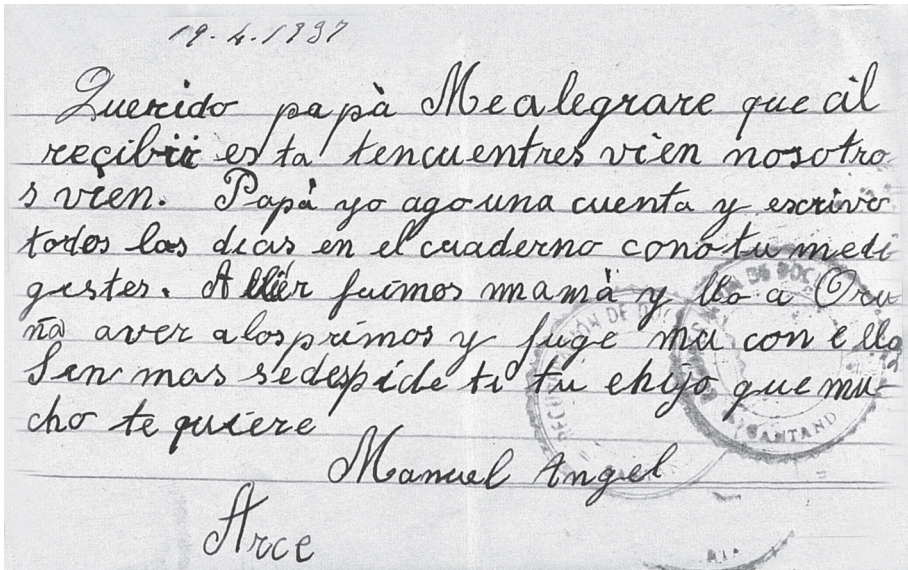 19.4.1937
Querido papà Mealegrare que al
recibir esta tencuentres vien nosotro
s vien. Papà yo ago una cuenta y escrivo
todos las dias en el cuaderno cono tu medi
gistes. Allér fuimos mamà y llo a Oru
ña aver alosprimos y fuge mu con ello
Sin mas sedespide ti tu ehijo que mu-
cho te quiere
Manuel Angel
Arce
SANTAND